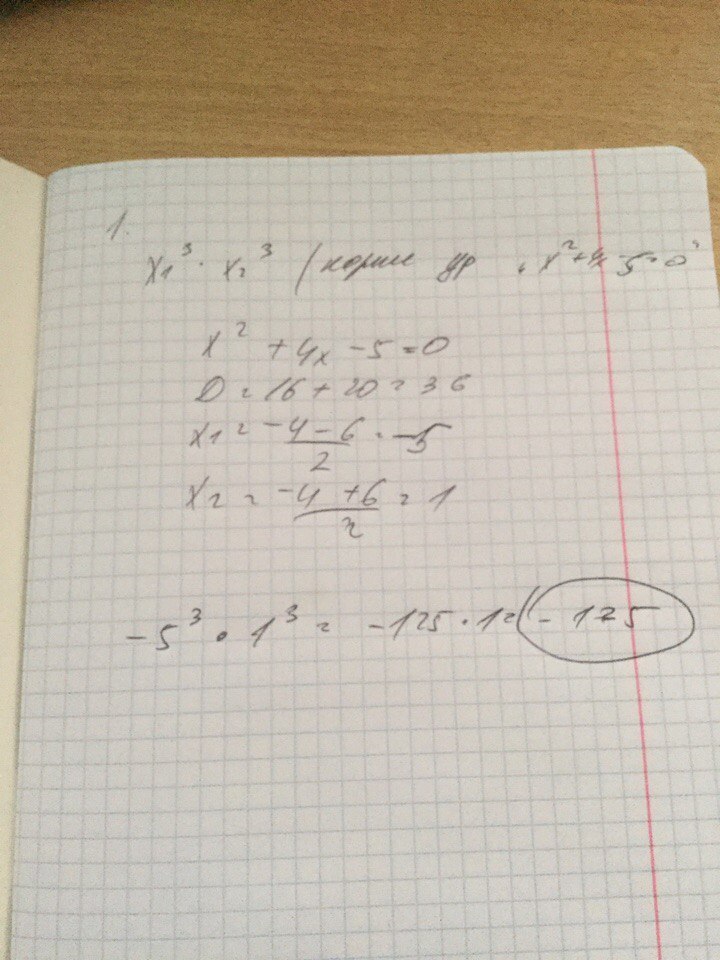 1.
x₁³ · x₂³ (корни ур. x²+4x-5=0
x² + 4x - 5 = 0
D = 16 + 20 = 36
x₁ = (-4-6)/2 = -5
x₂ = (-4+6)/2 = 1
-5³ · 1³ = -125 · 1 = (-125